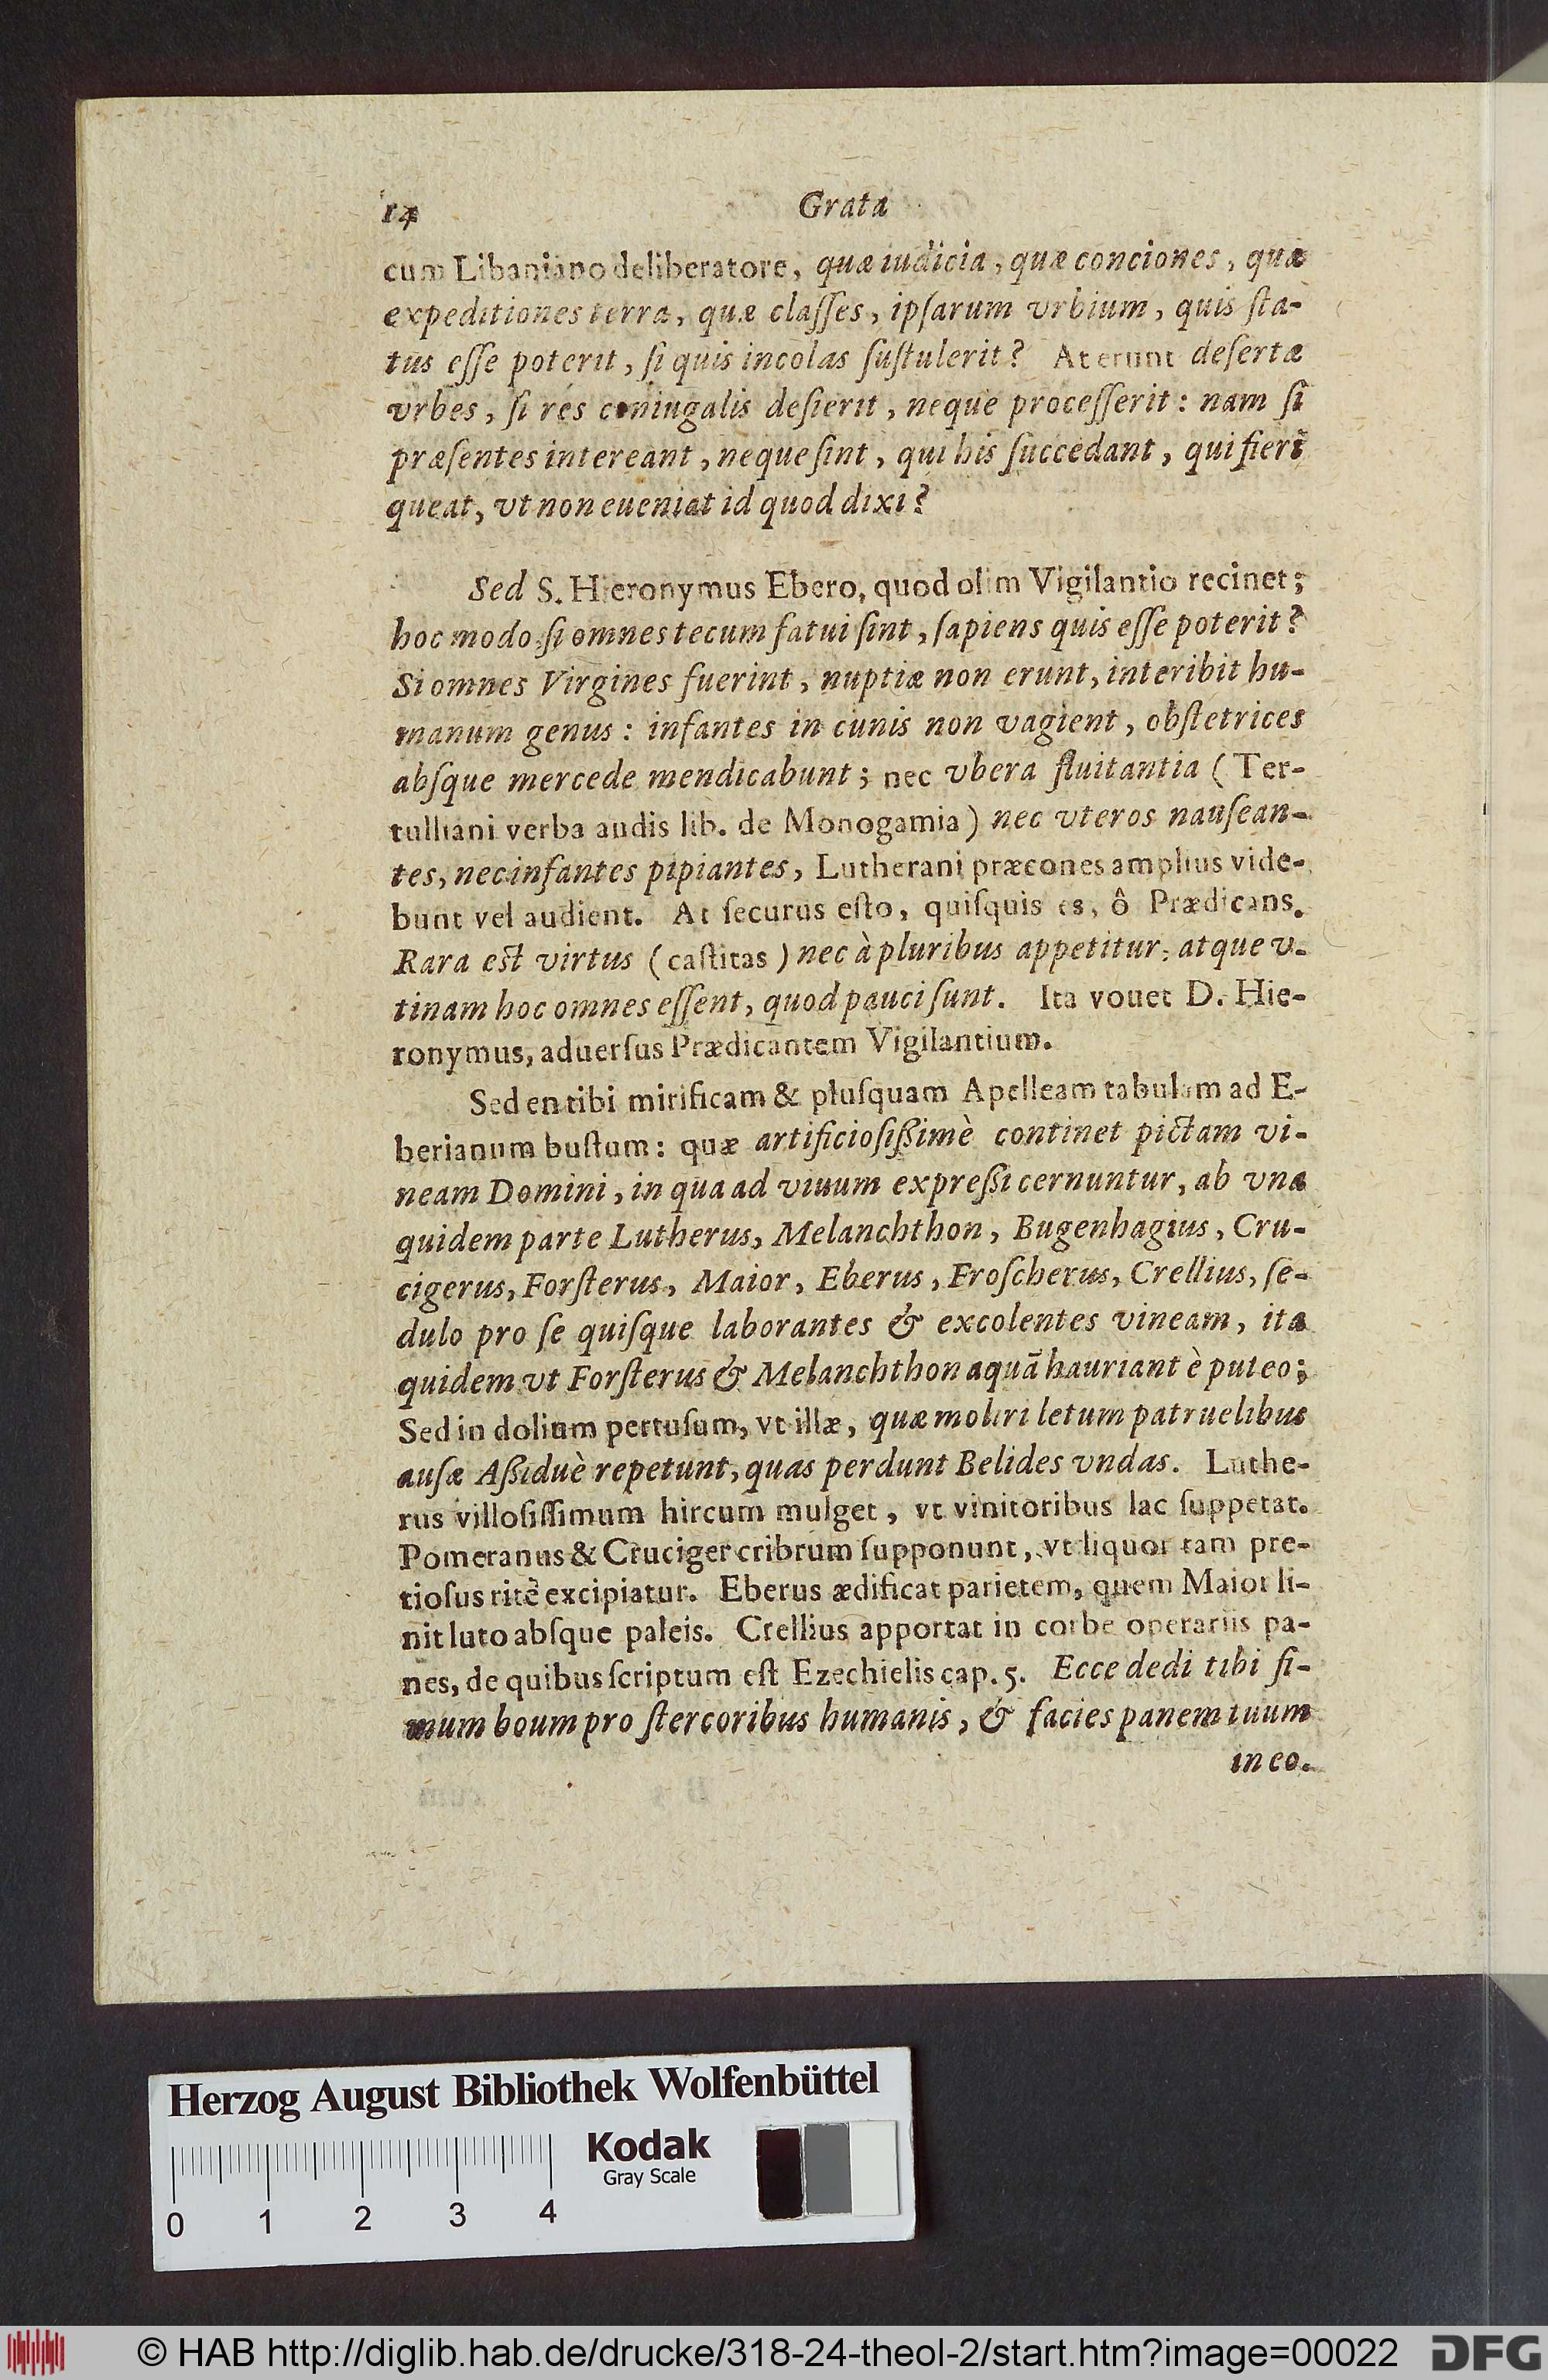 14 Grata
cum Libaniano deliberatore, quæ iudicia, quæ conciones, quæ
expeditiones terra, quæ claſſes, ipſarum vrbium, quis ſta-
tus eſſe poterit, ſi quis incolas ſuſtulerit? At erunt deſertæ
vrbes, ſi res coniugalis deſierit, neque proceſſerit: nam ſi
præſentes intereant, neque ſint, qui his ſuccedant, qui fieri
queat, vt non eueniat id quod dixi?
Sed S. Hieronymus Ebero, quod olim Vigilantio recinet;
hoc modo: ſi omnes tecum fatui ſint, ſapiens quis eſſe poterit?
Si omnes Virgines fuerint, nuptiæ non erunt, interibit hu-
manum genus: infantes in cunis non vagient, obſtetrices
abſque mercede mendicabunt; nec vbera fluitantia (Ter-
tulliani verba audis lib. de Monogamia) nec vteros nauſean-
tes, nec infantes pipiantes, Lutherani præcones amplius vide-
bunt vel audient. At ſecurus eſto, quiſquis es, ô Prædicans.
Rara eſt virtus (caſtitas) nec à pluribus appetitur, atque v-
tinam hoc omnes eſſent, quod pauci ſunt. Ita vouet D. Hie-
ronymus, aduerſus Prædicantem Vigilantium.
Sed en tibi mirificam & pluſquam Apelleam tabulam ad E-
berianum buſtum: quæ artificioſißimè continet pictam vi-
neam Domini, in qua ad viuum expreßi cernuntur, ab vna
quidem parte Lutherus, Melanchthon, Bugenhagius, Cru-
cigerus, Forſterus, Maior, Eberus, Froſcherus, Crellius, ſe-
dulo pro ſe quiſque laborantes & excolentes vineam, ita
quidem vt Forſterus & Melanchthon aquā hauriant è puteo;
Sed in dolium pertuſum, vt illæ, quæ moliri letum patruelibus
auſæ Aßiduè repetunt, quas perdunt Belides vndas. Luthe-
rus villoſiſſimum hircum mulget, vt vinitoribus lac ſuppetat.
Pomeranus & Cruciger cribrum ſupponunt, vt liquor tam pre-
tioſus ritè excipiatur. Eberus ædificat parietem, quem Maior li-
nit luto abſque paleis. Crellius apportat in corbe operariis pa-
nes, de quibus ſcriptum eſt Ezechielis cap. 5. Ecce dedi tibi fi-
mum boum pro ſtercoribus humanis, & facies panem tuum
in eo.
Herzog August Bibliothek Wolfenbüttel
Kodak
Gray Scale
0 1 2 3 4
© HAB http://diglib.hab.de/drucke/318-24-theol-2/start.htm?image=00022
DFG